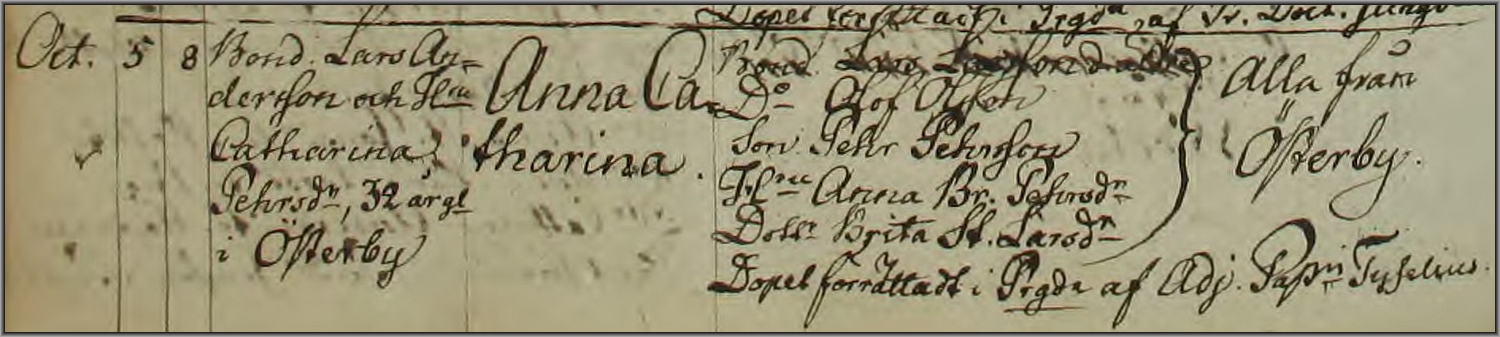 Dopet förrättadt i Prgdn af Hr. Doct.
Oct. 5 8 Bond. Lars An=
dersson och Hru
Catharina
Pehrsdr, 32 årgl
i Österby
Anna Ca=
tharina.
Bond.
Do Olof Olsson
Son. Pehr Pehrsson
Hru Anna Br. Pehrsdr
Dottr Brita St. Larsdr
Alla från
Österby.
Dopet förrättadt i Prgdn af Adj. Past. Tyselius.